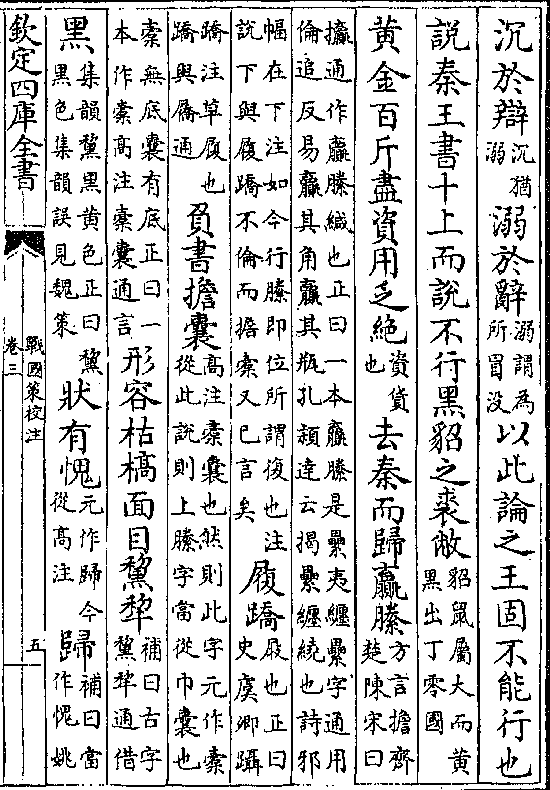 沉於辯沉猶溺溺於辭溺謂為所冒没以此論之王固不能行也
說秦王書十上而說不行黑貂之裘敝貂鼠屬大而黄黒出丁零國
黄金百斤盡資用乏絶資貨也去秦而歸羸縢方言擔齊楚陳宋曰
攍通作羸縢緘也正曰一本羸縢是纍夷纏纍字通用倫追反易羸其角羸其瓶孔頴達云揭纍纏繞也詩邪
幅在下注如今行縢即位所謂復也注說下與履蹻不倫而擔橐又已言矣履蹻屐也正曰史虞卿躡
蹻注草履也蹻與屩通負書擔囊高注橐囊也然則此字元作橐從此說則上縢字當從巾囊也
橐無底囊有底正曰一本作橐高注橐囊通言形容枯槁面目黧犂補曰古字黧犂通借
黑集韻黧黒黄色正曰黧黒色集韻誤見魏策狀有愧元作歸今從高注歸補曰當作愧姚
欽定四庫全書
戰國策校注
卷三
五